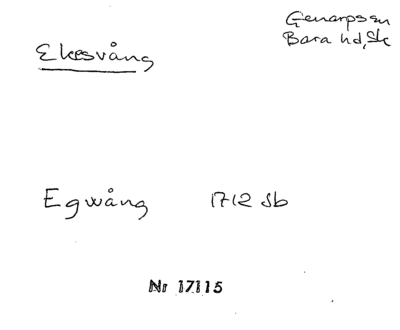 Genarps sn
Bara hd, Sk
Ekesvång
Egwång 1712 Jb
Nr 17115